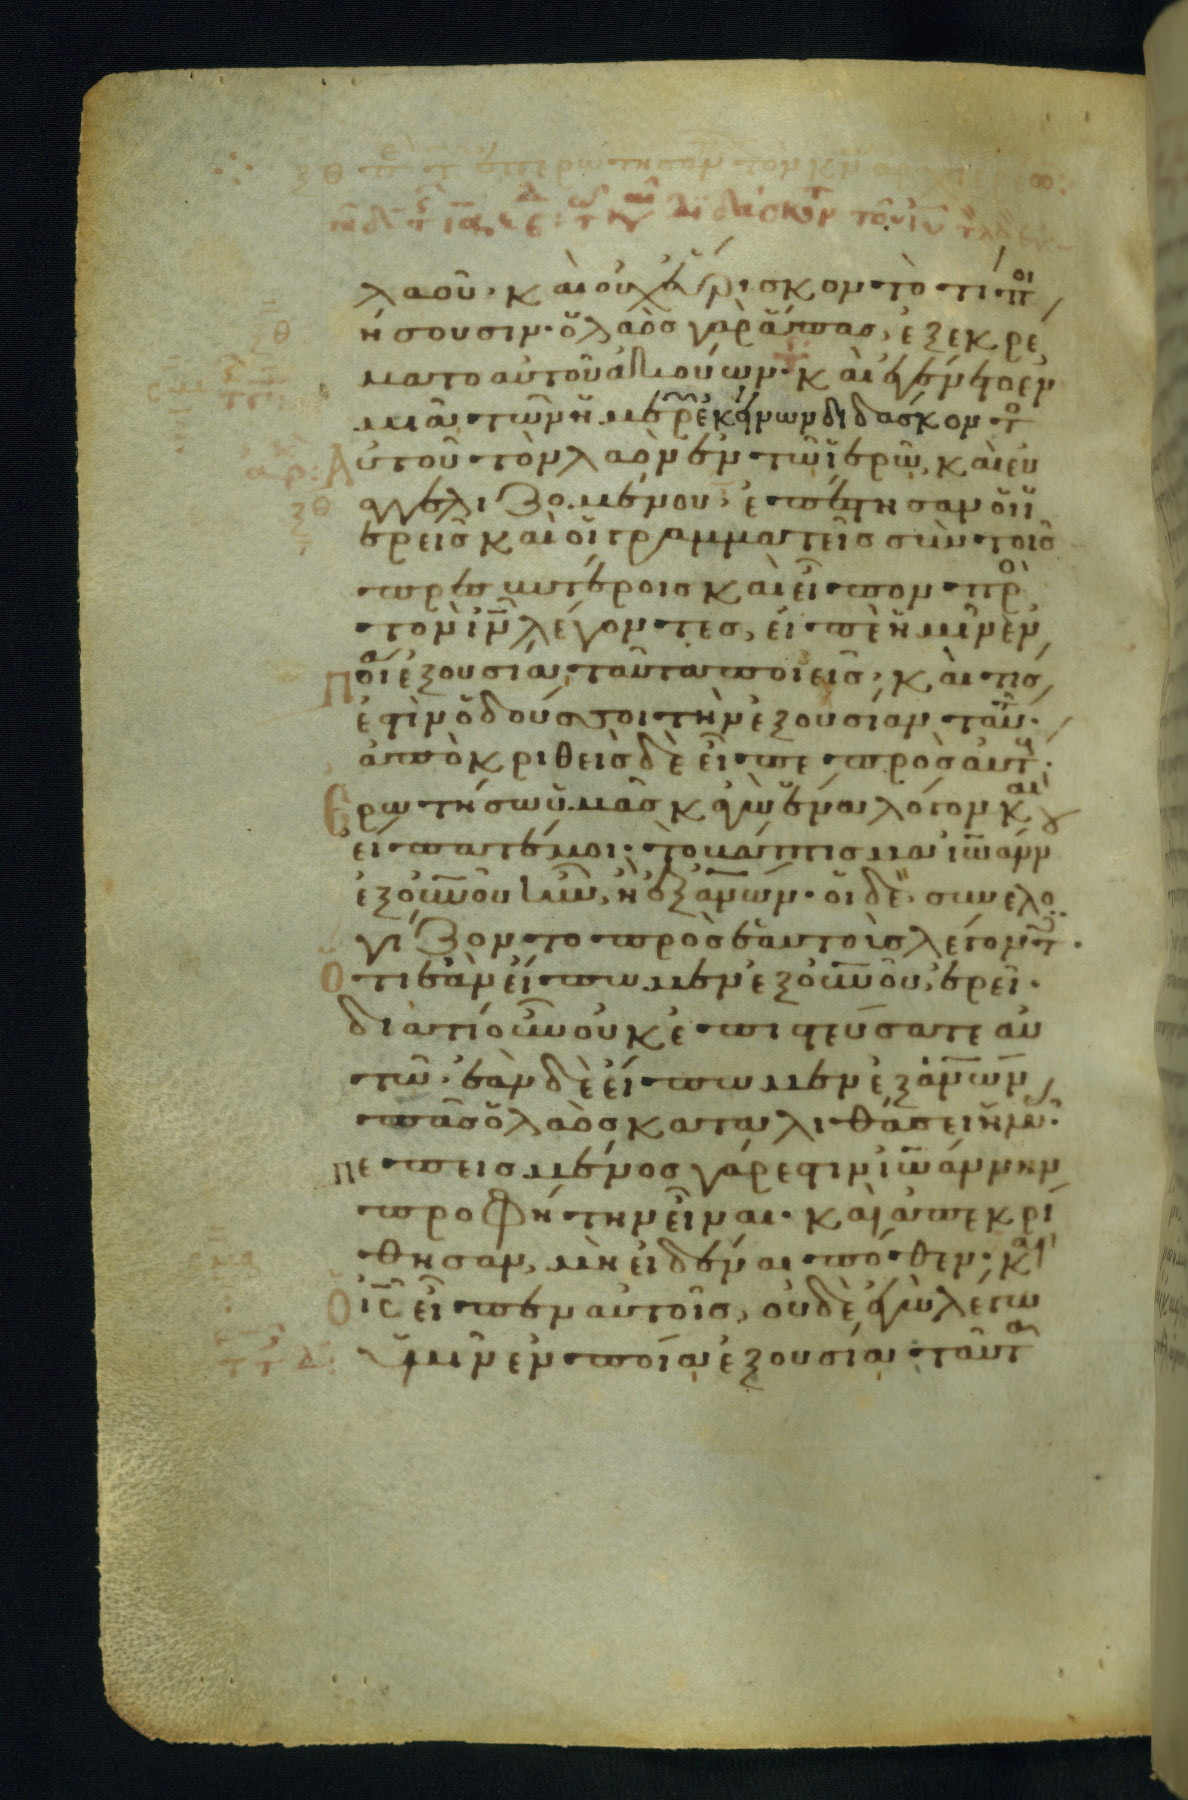 λαοῦ· καὶ οὐχ εὕρισκον τὸ τί π οι
ήσουσιν· ὁ λαὸς γὰρ ἅπας, ἐξεκρέ
ματο αὐτοῦ ἀκούων· καὶ ἐγένετο ἐν
μιᾷ τῶν ἡμερῶν ἐκείνων διδάσκοντο
αὐτοῦ τὸν λαὸν ἐν τῷ ἱερῷ, καὶ εὐ
αγγελιζομένου, ἐπέστησαν οἱ ἱ
ερεῖς καὶ οἱ γραμματεῖς σὺν τοῖς
πρεσβυτέροις καὶ εἶπον πρὸ
τὸν ιν λέγοντες, εἰπὲ ἡμῖν ἐν
ποίᾳ ἐξουσίᾳ ταῦτα ποιεῖς· καὶ τίς
ἐστιν ὁ δούς σοι τὴν ἐξουσίαν ταύτην·
ἀποκριθεὶς δὲ εἶπε πρὸς αὐτούς·
Ἐρωτήσω ὑμᾶς κἀγὼ ἕνα λόγον καὶ
εἴπατέ μοι· τὸ βάπτισμα ἰωάνν ου
ἐξ οὐνου ἦν, ἢ ἐξ ανων· οἱ δὲ συνελο
γίζοντο πρὸς ἑαυτοὺς λέγοντες·
Ὅτι ἐὰν εἴπωμεν ἐξ οὐνου, ἐρεῖ·
διατί οὖν οὐκ ἐπιστεύσατε αὐ
τῷ· ἐὰν δὲ εἴπωμεν ἐξ ανων,
πᾶς ὁ λαὸς καταλιθάσει ἡμᾶς·
πεπεισμένος γάρ ἐστιν ἰωάννην
προφήτην εἶναι· καὶ ἀπεκρί
θησαν, μὴ εἰδέναι πόθεν· καὶ
Ὁ ις εἶπεν αὐτοῖς, οὐδὲ ἐγὼ λέγω
ὑμῖν ἐν ποίᾳ ἐξουσίᾳ ταῦτα